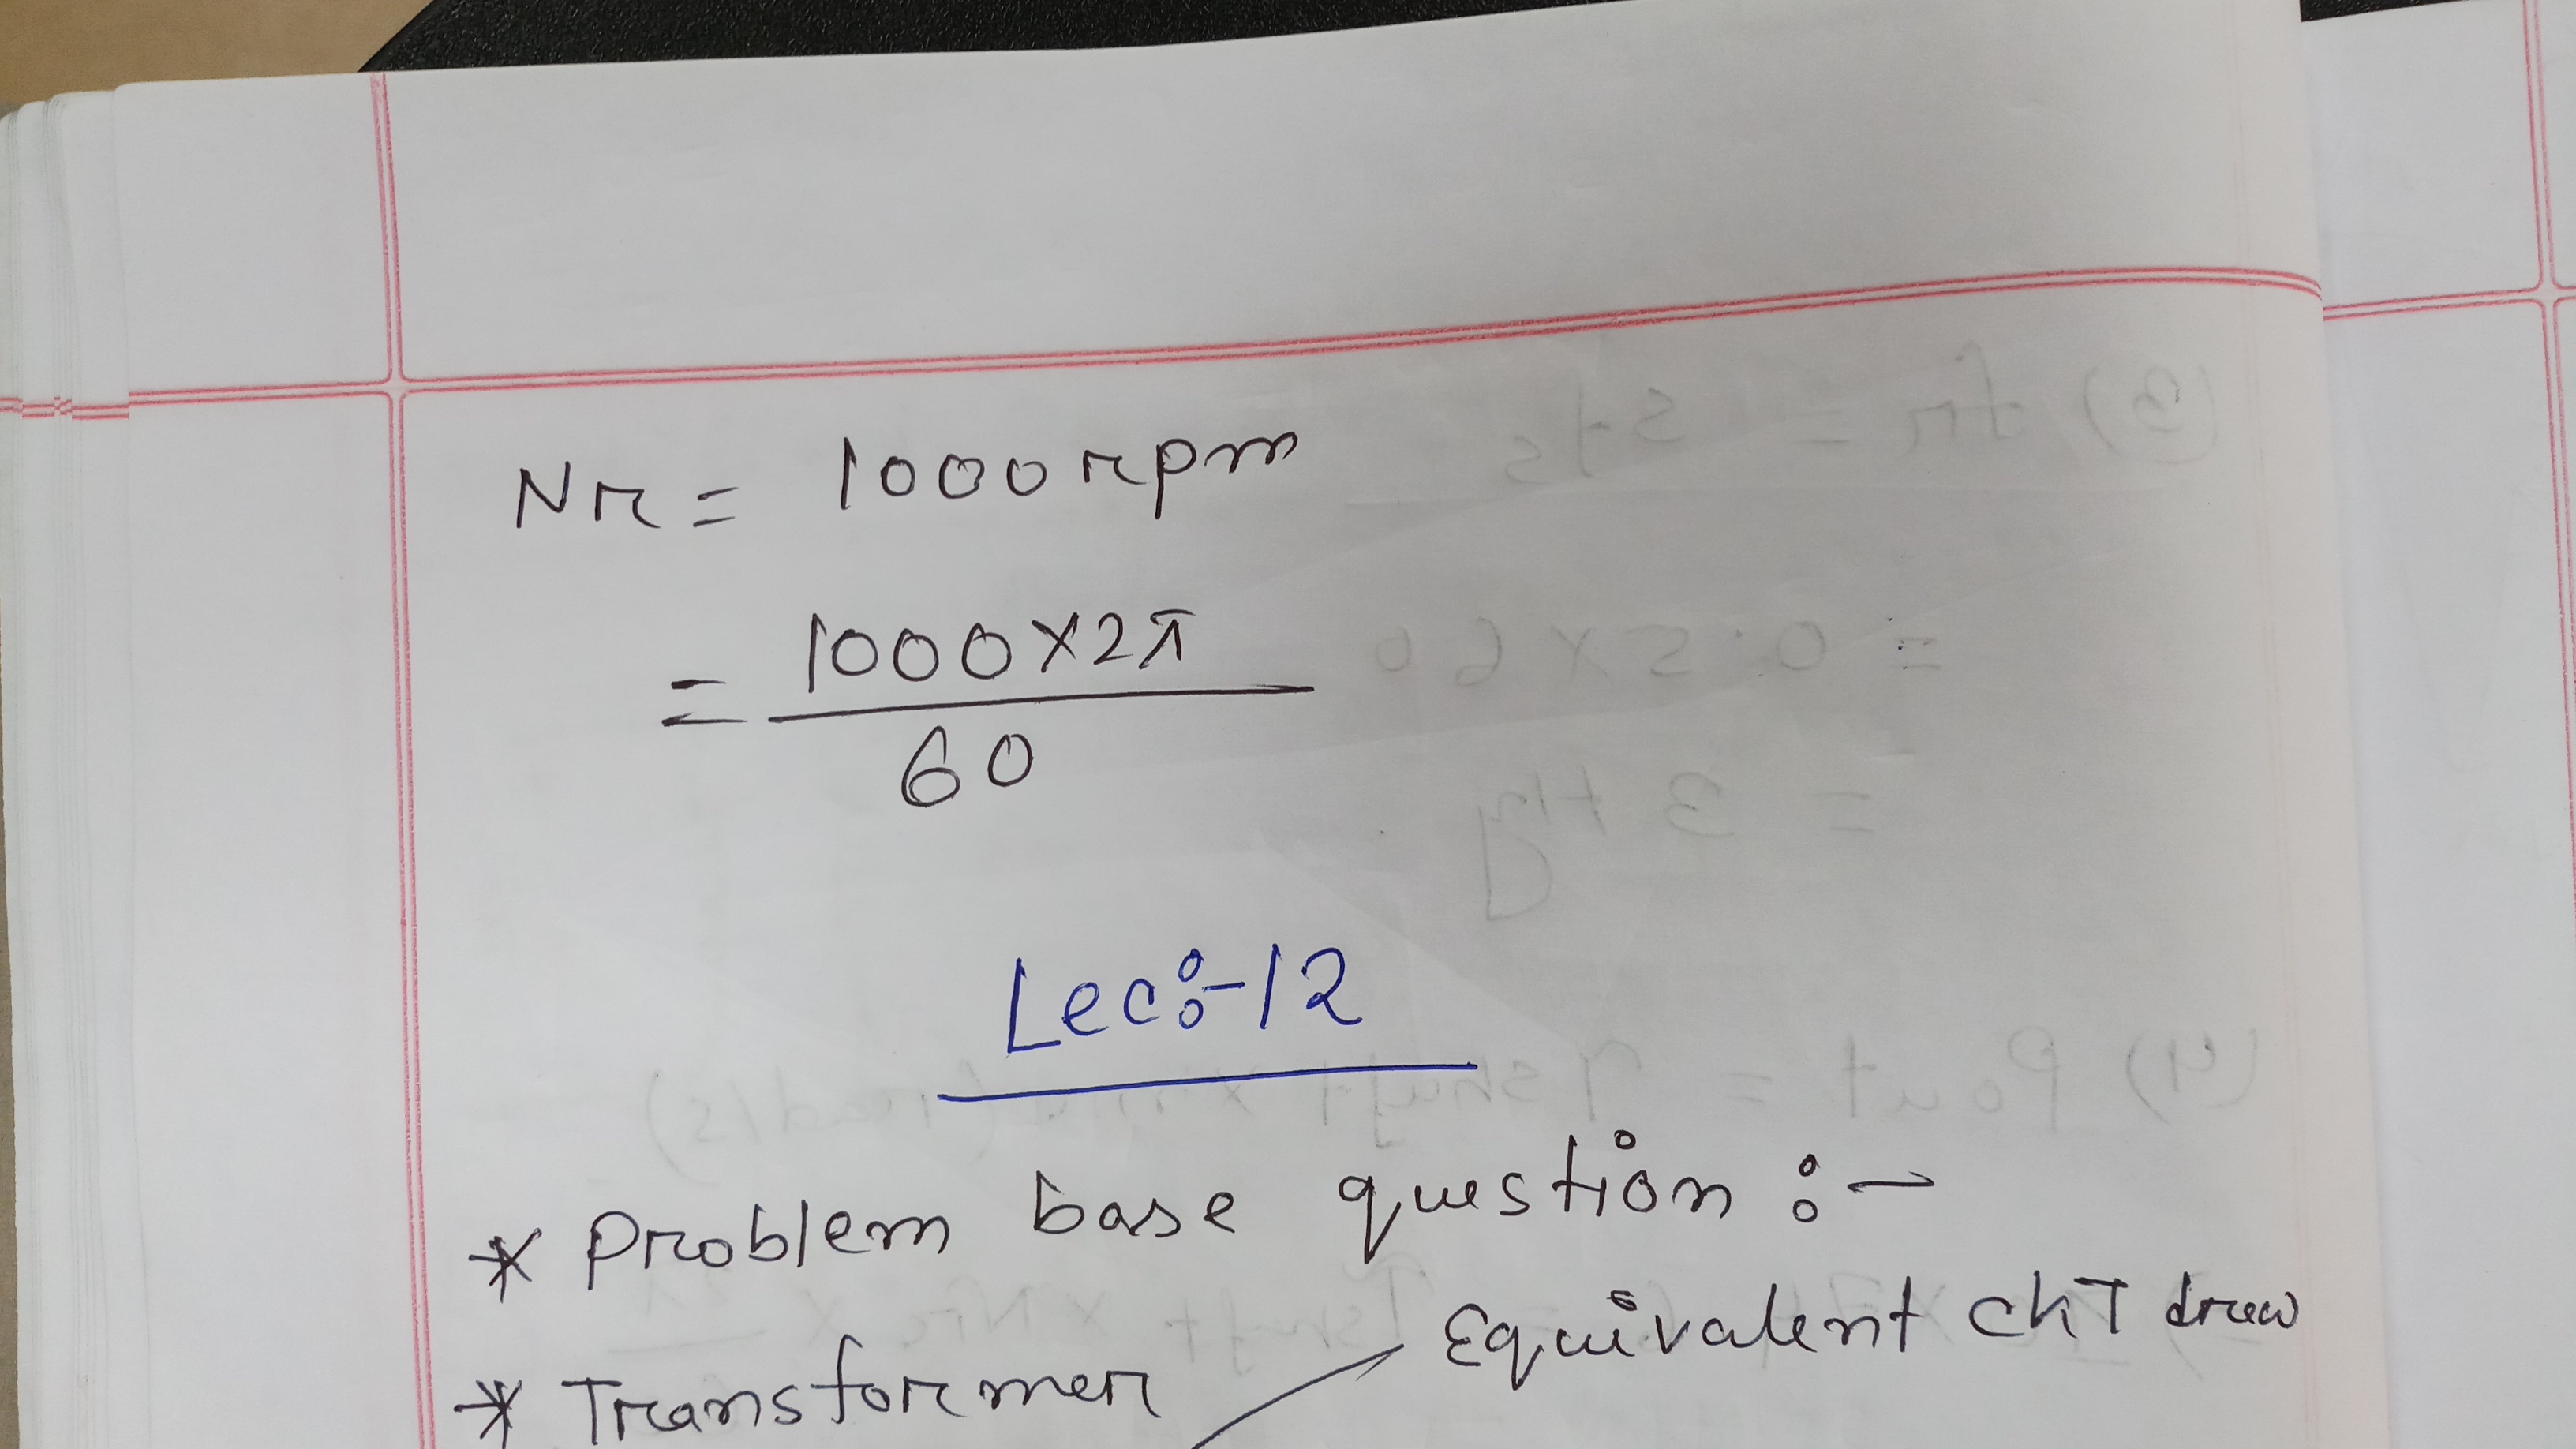 Nr = 1000 rpm
= 1000×2π
60
Lec:-12
* Problem base question :-
* Transformer
Equivalent ckT draw